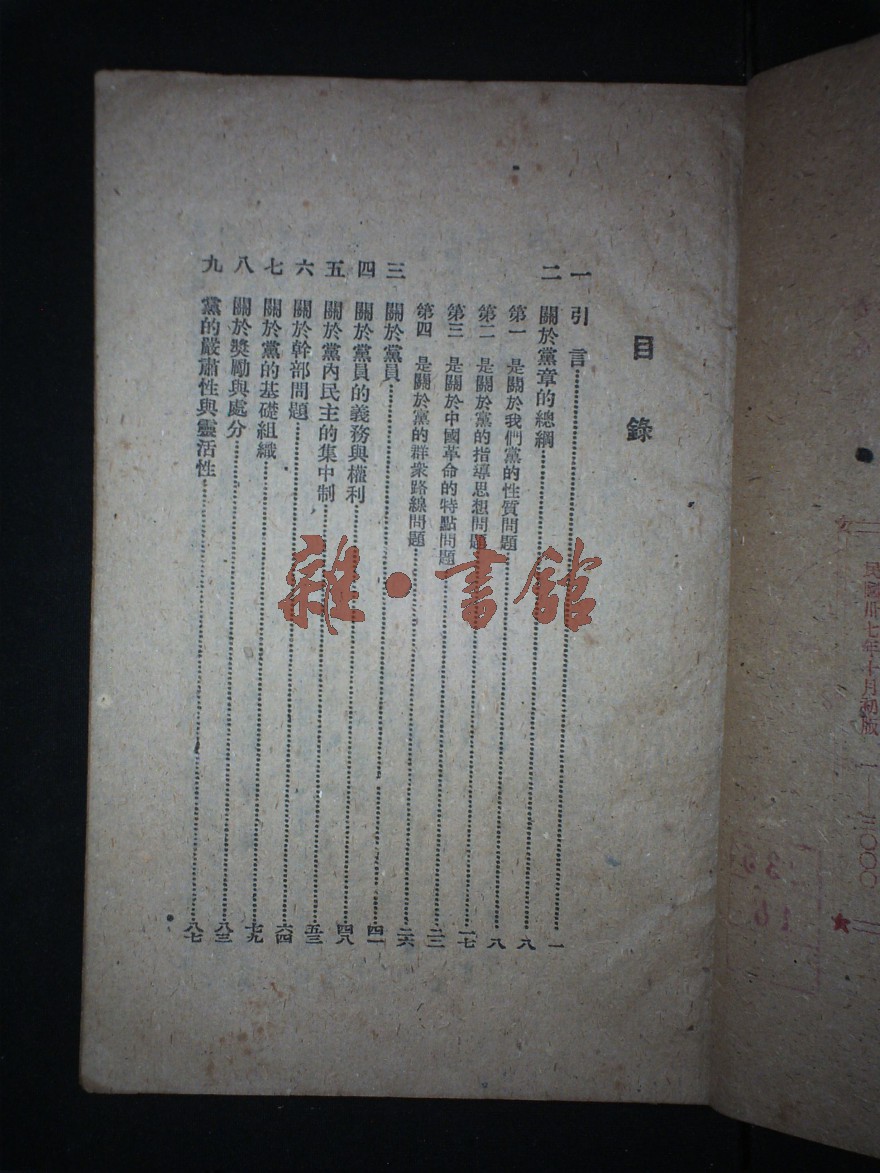 目錄
一 引言……一
二 關於黨章的總綱……九
第一 是關於我們黨的性質問題……八
第二 是關於黨的指導思想問題……一七
第三 是關於中國革命的特點問題……二二
第四 是關於黨的群衆路線問題……二六
三 關於黨員……四一
四 關於黨員的義務與權利……四八
五 關於黨內民主的集中制……五三
六 關於幹部問題……六四
七 關於黨的基礎組織……七九
八 關於獎勵與處分……八三
九 黨的嚴肅性與靈活性……八七
雜·書館
民國卅七年十月初版